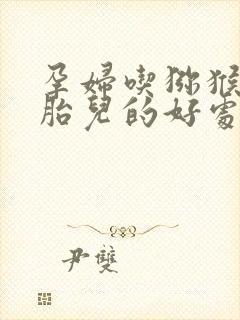 孕婦喫獼猴
胎兒的好處
尹雙